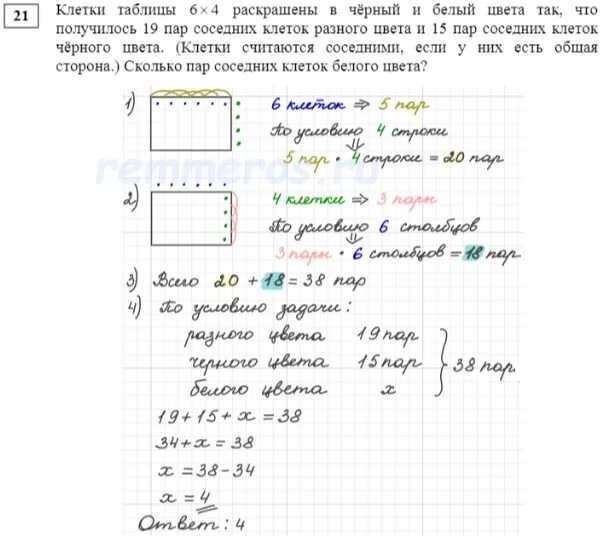 21
Клетки таблицы 6×4 раскрашены в чёрный и белый цвета так, что
получилось 19 пар соседних клеток разного цвета и 15 пар соседних клеток
чёрного цвета. (Клетки считаются соседними, если у них есть общая
сторона.) Сколько пар соседних клеток белого цвета?
1) 6 клеток ⇒ 5 пар
По условию 4 строки
⇓
5 пар · 4 строки = 20 пар
remmeros.ru
2) 4 клетки ⇒ 3 пары
По условию 6 столбцов
⇓
3 пары · 6 столбцов = 18 пар
3) Всего 20 + 18 = 38 пар
4) По условию задачи:
разного цвета 19 пар
черного цвета 15 пар } 38 пар
белого цвета x
19 + 15 + x = 38
34 + x = 38
x = 38 - 34
x = 4
Ответ: 4